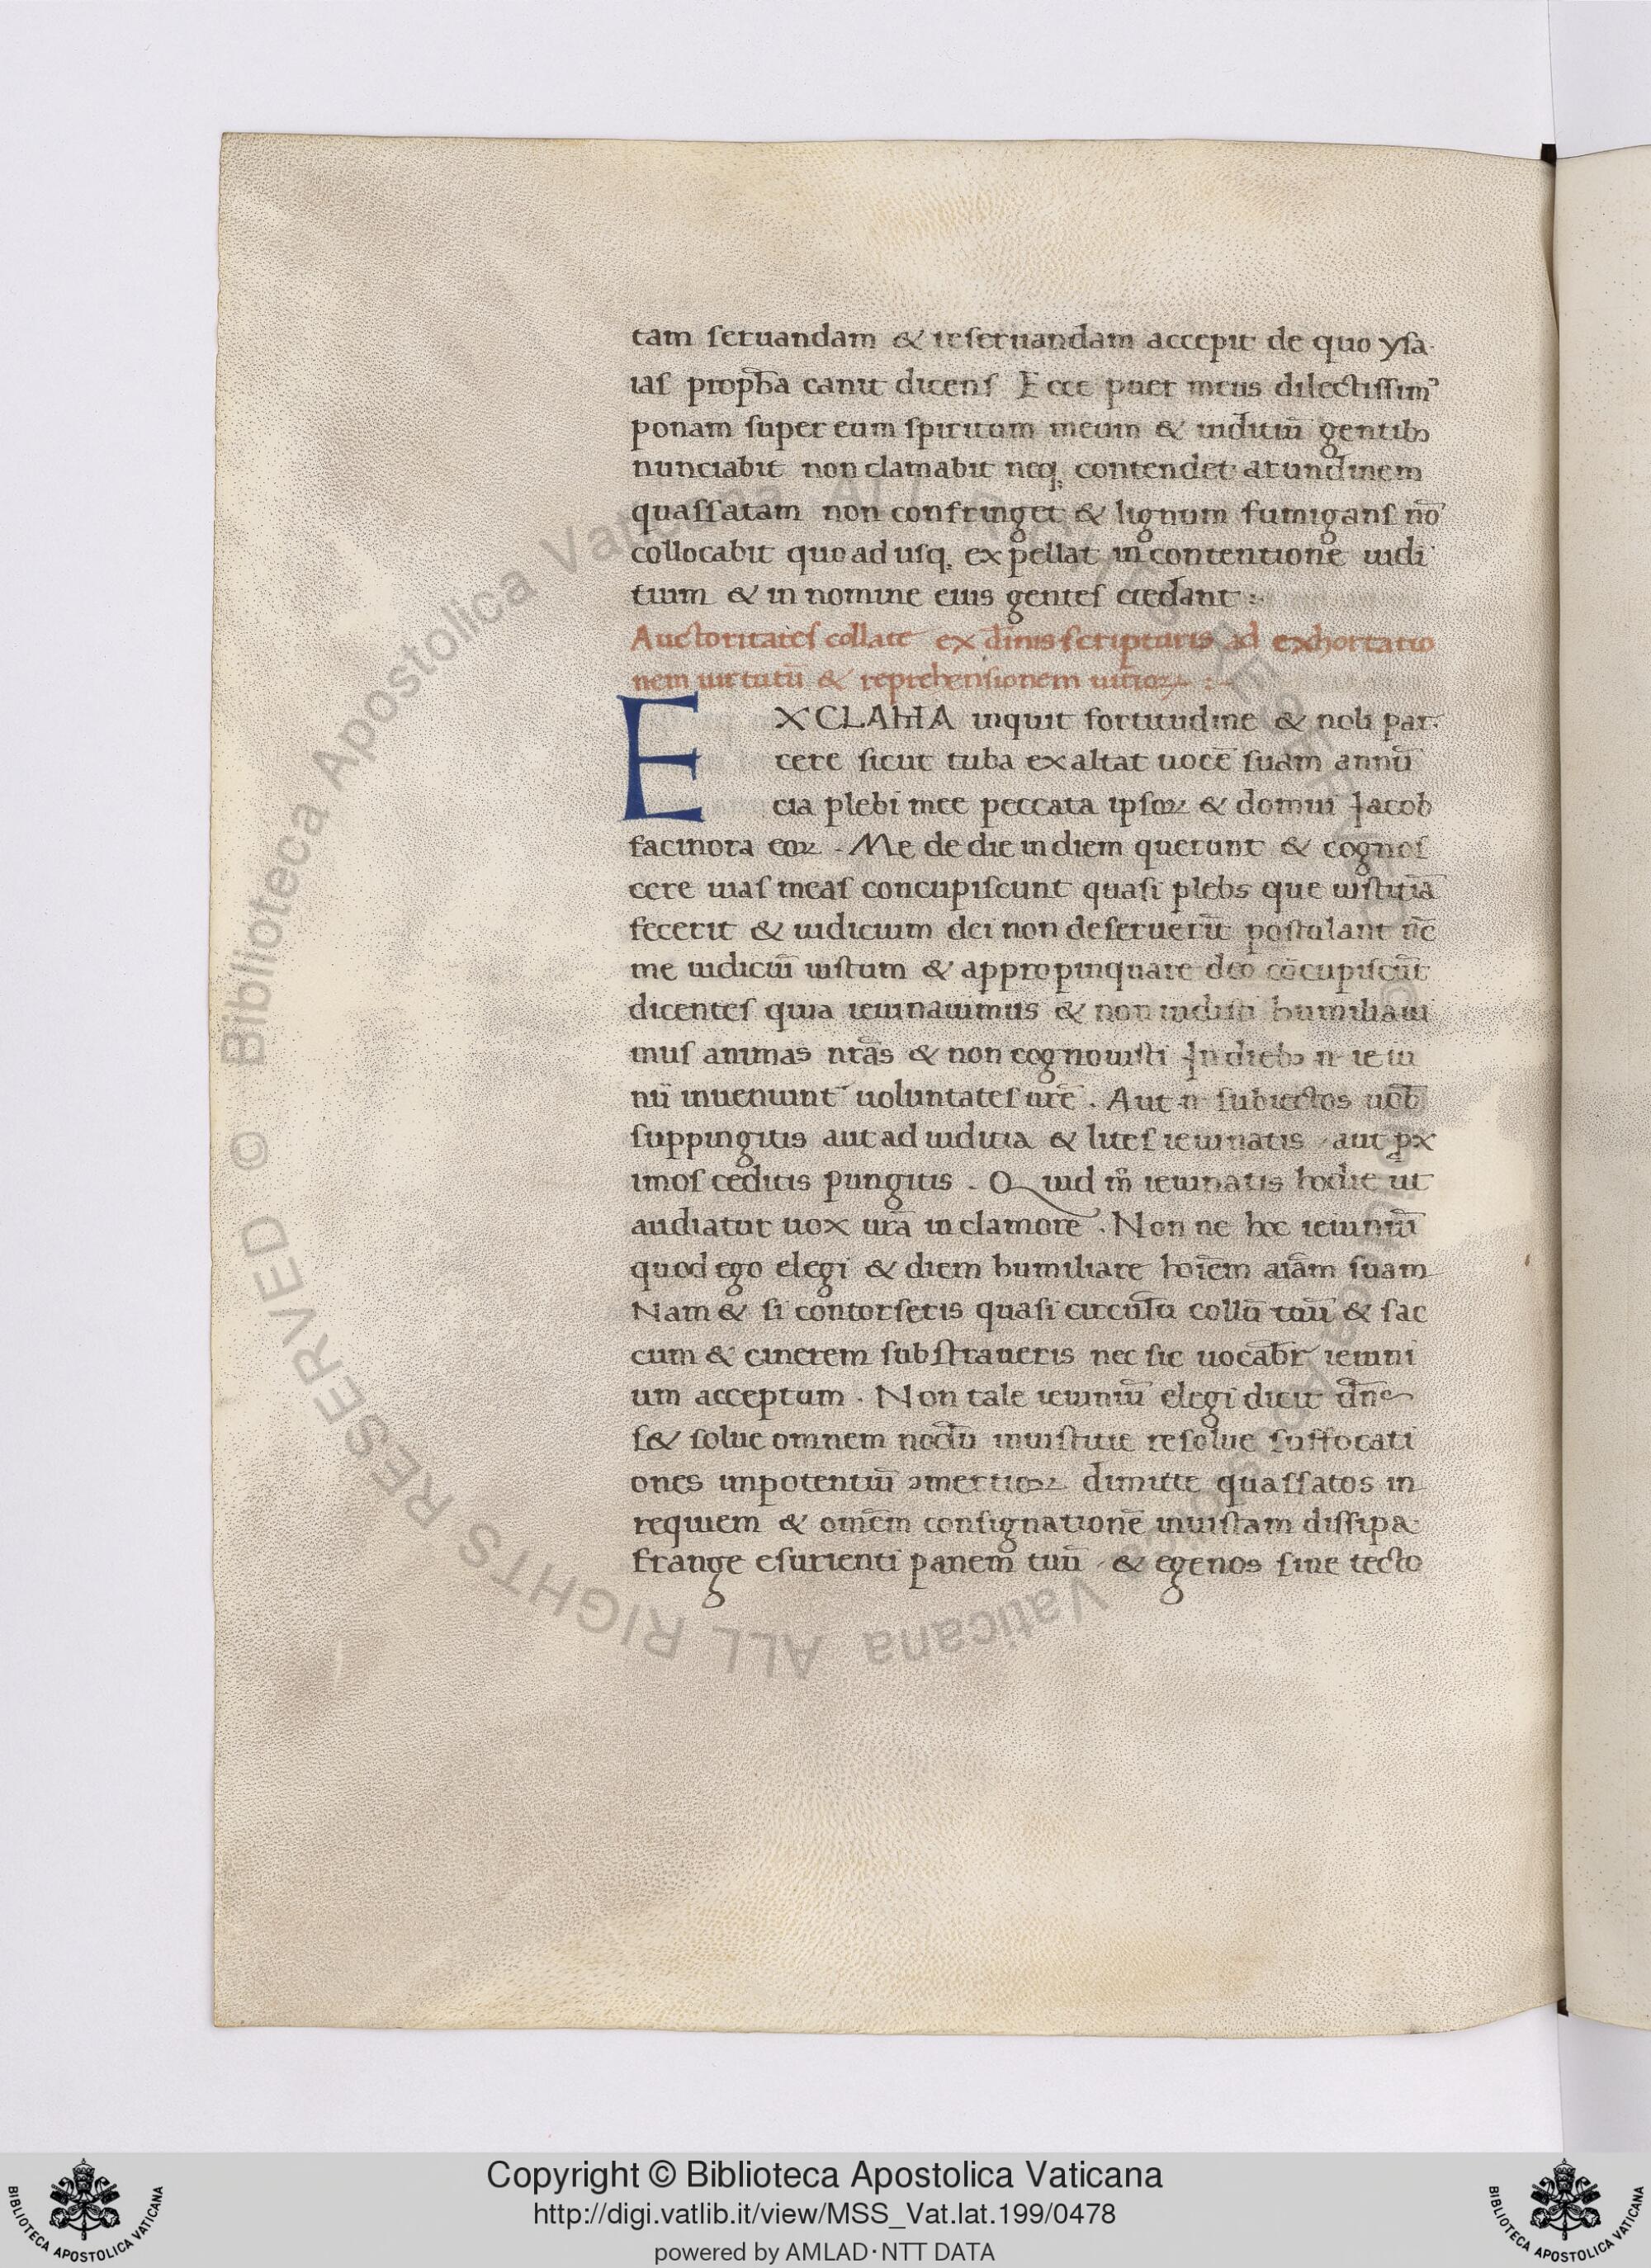 tam seruandam & reseruandam accepit de quo ysa-
ias prop̅ha canit dicens Ecce puer meus dilectissim⁹
ponam super eum spiritum meum & iudiciu̅ gentibꝫ
nunciabit non clamabit neqꝫ contendet arundinem
quassatam non confringet & lignum fumigans no̅
collocabit quo ad usqꝫ expellat in contentione iudi
tium & in nomine eius gentes credant :-
Auctoritates collate ex diuinis scripturis ad exhortatio
nem uirtutu̅ & reprehensionem uitioꝝ :-
EXCLAMA inquit fortitudine & noli par-
cere sicut tuba exaltat uoce̅ suam annu̅
cia plebi mee peccata ipsoꝝ & domui Jacob
facinora eoꝝ . Me de die in diem querunt & cognos
cere uias meas concupiscunt quasi plebs que iustitia̅
fecerit & iudicium dei non deserueru̅t postulant nc̅
me iudiciu̅ iustum & appropinquare deo co̅cupiscu̅t
dicentes quia ieiunauimus & non uidisti humiliaui
mus animas nr̅as & non cognouisti In diebꝫ n̅ ieiu
nii inueniunt̅ uoluntates ur̅e . Aut n̅ subiectos uob̅
suppingitis aut ad iuditia & lites ieiunatis aut ꝓx
imos ceditis pungitis . Quid m̅ ieiunatis hodie ut
audiatur uox ur̅a in clamore . Non ne hoc ieiuniu̅
quod ego elegi & diem humiliare hoi̅em ai̅am suam
Nam & si contorseris quasi circulu̅ collu̅ tuu̅ & sac
cum & cinerem substraueris nec sic uocabr̅ ieiuni
um acceptum . Non tale ieiuniu̅ elegi dicit dn̅s
s& solue omnem nodu̅ iniustitie resolue suffocati
ones impotentiu̅ ꝯmertioꝝ dimitte quassatos in
requiem & om̅em consignatione̅ iniustam dissipa
frange esurienti panem tuu̅ & egenos sine tecto
Copyright © Biblioteca Apostolica Vaticana
http://digi.vatlib.it/view/MSS_Vat.lat.199/0478
powered by AMLAD·NTT DATA
BIBLIOTECA APOSTOLICA VATICANA
BIBLIOTECA APOSTOLICA VATICANA
© Biblioteca Apostolica Vaticana ALL RIGHTS RESERVED © Biblioteca Apostolica Vaticana ALL RIGHTS RESERVED